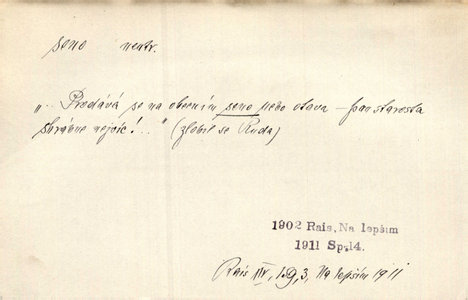 seno neutr.
„.. Prodává se na obecním seno nebo otava – pan starosta
shrábne nejvíc! .." (zlobil se Ruda)
1902 Rais, Na lepším
1911 Sp.14.
Rais XIV, 159, 3, Na lepším 1911